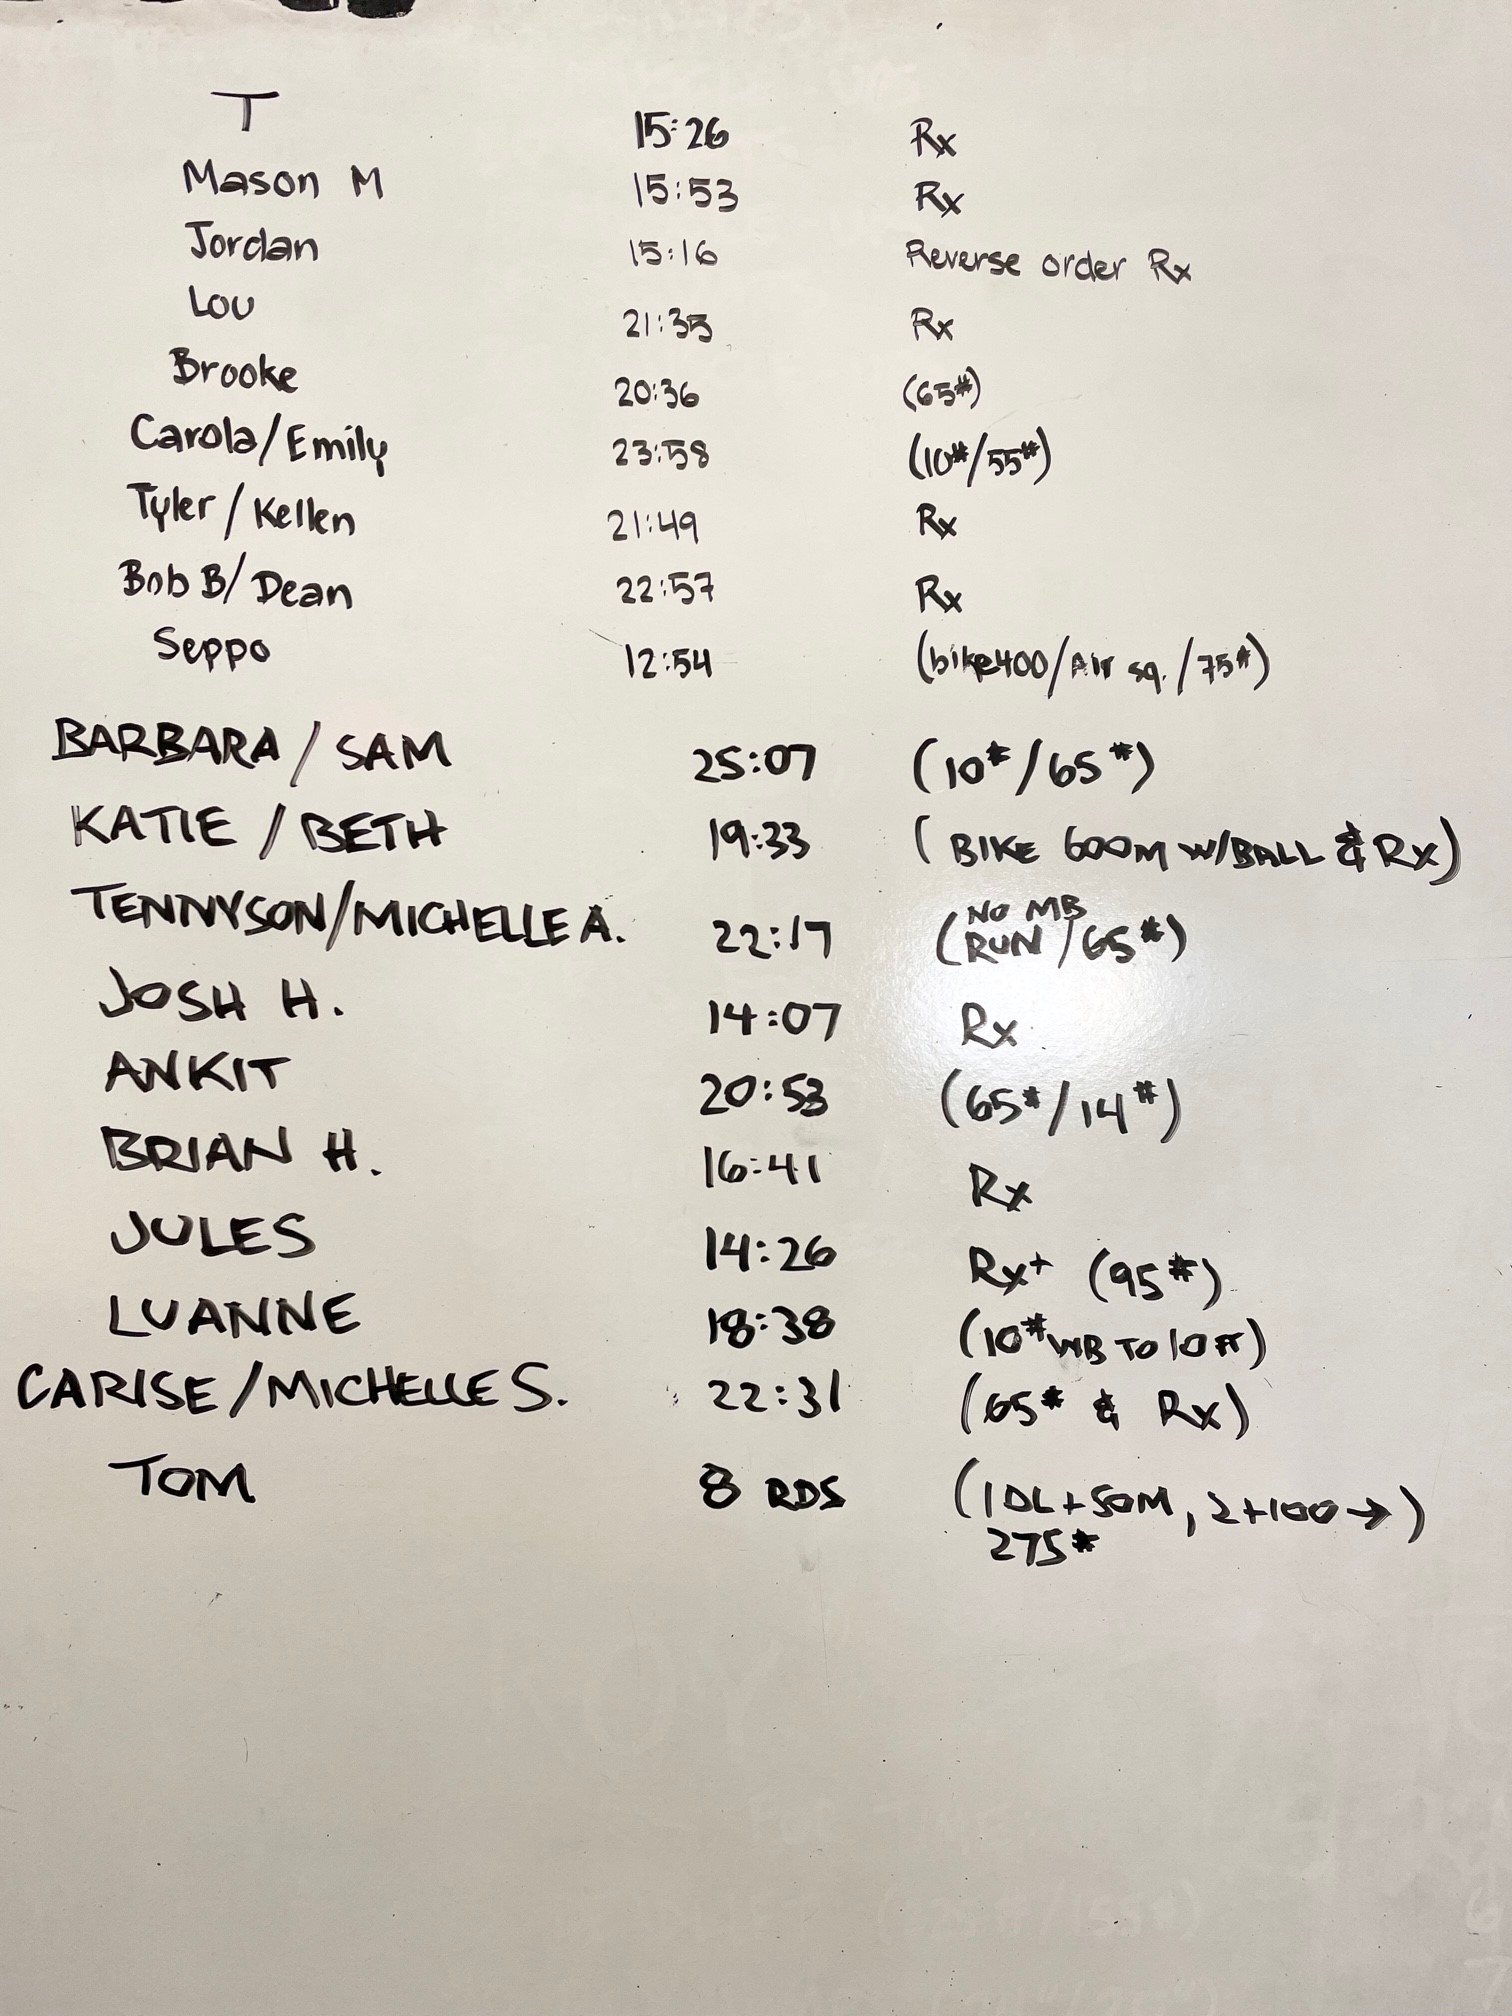 T 15:26 Rx
Mason M 15:53 Rx
Jordan 15:16 Reverse order Rx
Lou 21:35 Rx
Brooke 20:36 (65#)
Carola/Emily 23:58 (10#/55#)
Tyler / Kellen 21:49 Rx
Bob B/ Dean 22:57 Rx
Seppo 12:54 (bike400/Air sq. /75#)
BARBARA / SAM 25:07 (10#/65#)
KATIE / BETH 19:33 ( BIKE 600M W/BALL & Rx)
TENNYSON/MICHELLE A. 22:17 (NO MB RUN /65#)
JOSH H. 14:07 Rx
ANKIT 20:53 (65#/14#)
BRIAN H. 16:41 Rx
JULES 14:26 Rx+ (95#)
LUANNE 18:38 (10# WB TO 10 FT)
CARISE /MICHELLE S. 22:31 (65# & Rx)
TOM 8 RDS (1 DL + 50M, 2+100 →)
275#